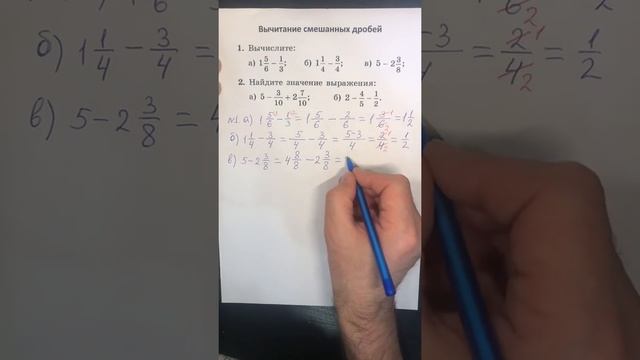 Вычитание смешанных дробей
1. Вычислите:
а) 1 5/6 − 1/3; б) 1 1/4 − 3/4; в) 5 − 2 3/8;
2. Найдите значение выражения:
а) 5 − 3/10 + 2 7/10; б) 2 − 4/5 − 1/2.
№1. а) 1 5/6 − 1/3 = 1 5/6 − 2/6 = 1 3/6 = 1 1/2
б) 1 1/4 − 3/4 = 5/4 − 3/4 = 5−3/4 = 2/4 = 1/2
в) 5 − 2 3/8 = 4 8/8 − 2 3/8 =